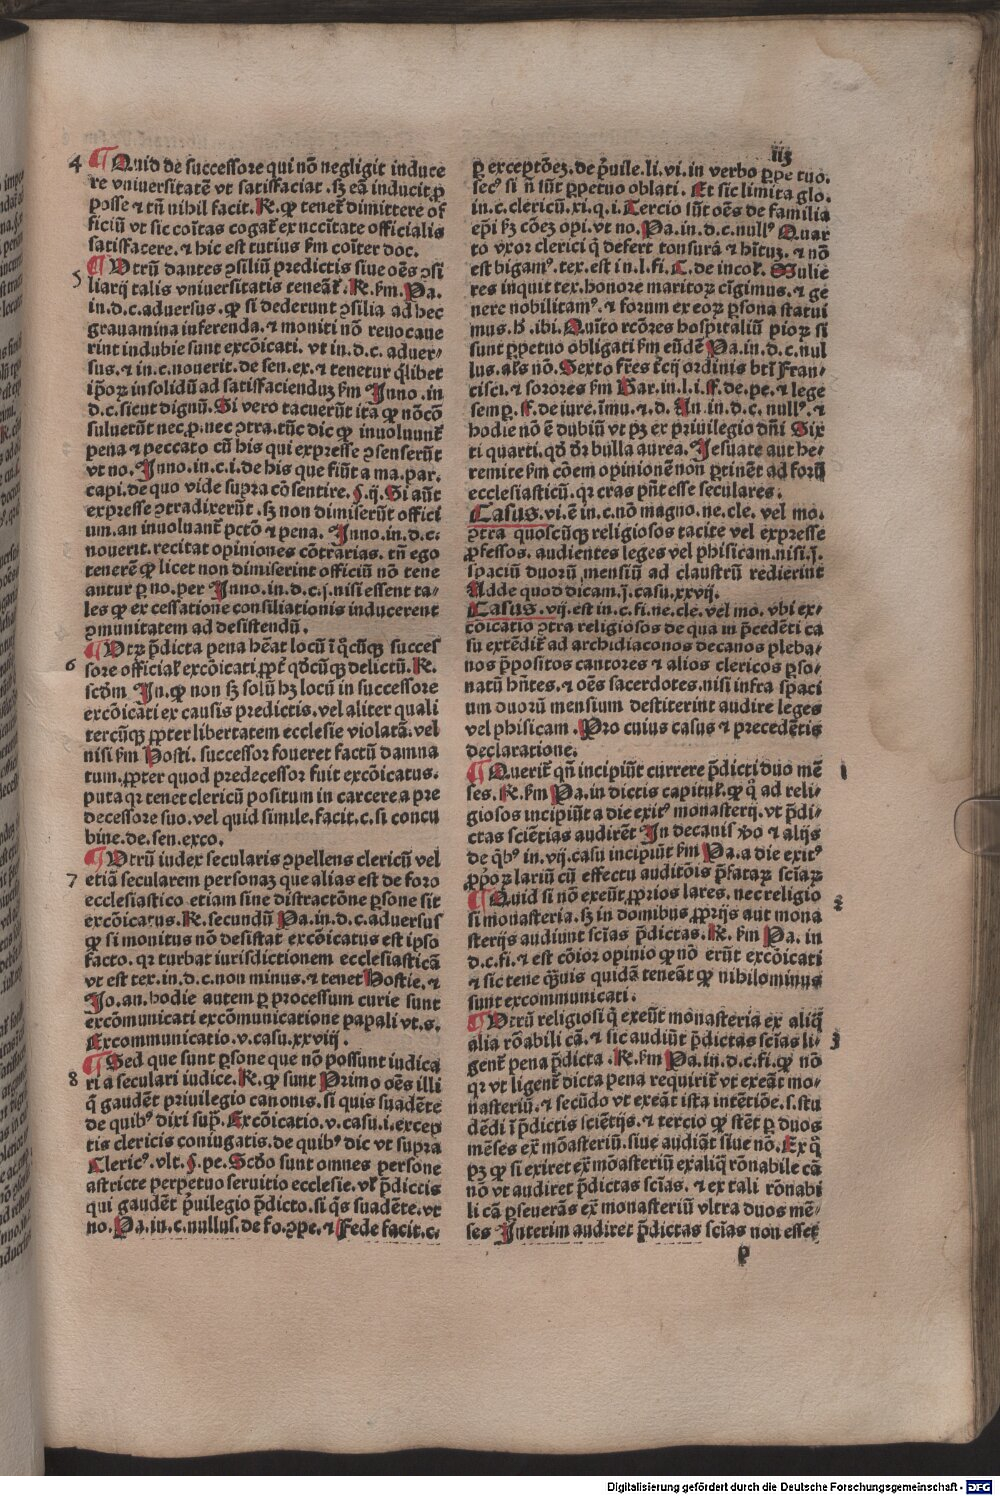 113
4 ¶ Quid de successore qui nō negligit induce
re vniuersitatē vt satisfaciat. sꝫ eā inducit ꝓ
posse ⁊ tñ nihil facit. R. ꝙ teneť dimittere of
ficiū vt sic coītas cogať ex nccītate officialis
satisfacere. ⁊ hic est tutius ẜm coīter doc.
5 ¶ Vtrū dantes ꝯsiliū predictis siue oēs ꝯsi
liarij talis vniuersitatis teneāť. R. ẜm. Pa.
in. d. c. aduersus. ꝙ si dederunt ꝯsilia ad hec
grauamina inferenda. ⁊ moniti nō reuocaue
rint indubie sunt excōicati. vt in. d. c. aduer⸗
sus. ⁊ in. c. nouerit. de sen. ex. ⁊ tenetur ꝗlibet
ip̄oꝝ insolidū ad satisfacienduꝫ ẜm Inno. in
d. c. sicut dignū. Si vero tacuerūt ita ꝙ nō cō
suluerūt nec ꝓ. nec ꝯtra. tūc dic ꝙ inuoluunť
pena ⁊ peccato cū his qui expresse ꝯsenserūt
vt no. Inno. in. c. i. de his que fiūt a ma. par.
capi. de quo vide supra cōsentire. §. ij. Si aūt
expresse ꝯtradixerūt. sꝫ non dimiserūt offici
um. an inuoluanť pctō ⁊ pena. Inno. in. d. c.
nouerit. recitat opiniones cōtrarias. tñ ego
tenerem ꝙ licet non dimiserint officiū nō tene
antur ꝑ no. per Inno. in. d. c. j. nisi essent ta⸗
les ꝙ ex cessatione consiliationis inducerent
ꝯmunitatem ad desistendū.
6 ¶ Vtꝝ p̄dicta pena hēat locū ī q̊cūꝙ succes
sore officiať excōicati ꝓpť qd̊cūꝙ delictū. R.
scd̄m In. ꝙ non sꝫ solū hꝫ locū in successore
excōicati ex causis predictis. vel aliter quali
tercūꝙ ꝓpter libertatem ecclesie violatā. vel
nisi ẜm Hosti. successor foueret factū damna
tum. ꝓpter quod predecessor fuit excōicatus.
puta qꝛ tenet clericū positum in carcere a pre
decessore suo. vel quid simile. facit. c. si concu
bine. de. sen. exco.
7 ¶ Vtrū iudex secularis ꝯpellens clericū vel
etiā secularem personaꝫ que alias est de foro
ecclesiastico etiam sine distractōne ꝑsone sit
excōicatus. R. secundū Pa. in. d. c. aduersus
ꝙ si monitus nō desistat excōicatus est ipso
facto. qꝛ turbat iurisdictionem ecclesiasticā
vt est tex. in. d. c. non minus. ⁊ tenet Hostie. ⁊
Jo. an. hodie autem ꝑ processum curie sunt
excōmunicati excōmunicatione papali vt. s.
Excommunicatio. v. casu. xxviij.
8 ¶ Sed que sunt ꝑsone que nō possunt iudica
ri a seculari iudice. R. ꝙ sunt Primo oēs illi
q̄ gaudēt priuilegio canonis. si quis suadēte
de quibꝰ dixi sup̄. Excōicatio. v. casu. i. excep
tis clericis coniugatis. de quibꝰ dic vt supra
Clericꝰ. vlt. §. pe. Scd̄o sunt omnes persone
astricte perpetuo seruitio ecclesie. vť p̄dictis
qui gaudēt p̄uilegio p̄dicto. si q̄s suadēte. vt
no. Pa. in. c. nullus. de fo. ꝯpe. ⁊ Fede facit. c.
ꝑ exceptōeꝫ. de p̄uile. li. vi. in verbo ꝑpetuo.
secꝰ si ñ sūt ꝑpetuo oblati. Et sic limita glo.
in. c. clericū. xi. q. i. Tercio sūt oēs de familia
ep̄i ẜꝫ cōeꝫ opi. vt no. Pa. in. d. c. nullꝰ Quar
to vxor clerici q̄ defert tonsurā ⁊ hītuꝫ. ⁊ nō
est bigamꝰ. tex. est in. l. fi. C. de incoł. Mulie
res inquit tex. honore maritoꝝ erigimus. ⁊ ge
nere nobilitamꝰ. ⁊ forum ex eoꝝ ꝑsona statui
mus. h̄. ibi. Quīto rcōres hospitaliū pioꝝ si
sunt ꝑpetuo obligati ẜm eūdē Pa. in. d. c. nul
lus. als nō. Sexto fr̄es tc̄ij ordinis btī Fran⸗
cisci. ⁊ sorores ẜm Bar. in. l. i. ff. de. pe. ⁊ lege
semꝑ. ff. de iure. īmu. ⁊. d. An. in. d. c. nullꝰ. ⁊
hodie nō ē dubiū vt pꝫ ex priuilegio dñi Six
ti quarti. qd̄ dr̄ bulla aurea. Jesuate aut he⸗
remite ẜm cōem opinionē non ꝑtinēt ad forū
ecclesiasticū. qꝛ cras pn̄t esse seculares.
Casus. vi. ē in. c. nō magno. ne. cle. vel mo.
ꝯtra quoscūꝙ religiosos tacite vel expresse
ꝓfessos. audientes leges vel phisicam. nisi. j.
spaciū duorū mensiū ad claustrū redierint
Adde quod dicam. j. casu. xxvij.
Casus. vij. est in. c. fi. ne. cle. vel mo. vbi ex⸗
cōicatio ꝯtra religiosos de qua in p̄cedēti ca
su extēdiť ad archidiaconos decanos pleba⸗
nos p̄positos cantores ⁊ alios clericos ꝑso⸗
natū hñtes. ⁊ oēs sacerdotes. nisi infra spaci
um duorū mensium destiterint audire leges
vel phisicam. Pro cuius casus ⁊ precedētis
declaratione.
¶ Queriť qñ incipiūt currere p̄dicti duo mē 1
ses. R. ẜm Pa. in dictis capituť. ꝙ q̊ ad reli⸗
giosos incipiūt a die exitꝰ monasterij. vt p̄di⸗
ctas sciētias audirēt In decanis ꝟo ⁊ alijs
de q̄bꝰ in. vij. casu incipiūt ẜm Pa. a die exitꝰ
ꝓp̄oꝝ lariū cū effectu auditōis p̄fataꝝ scīaꝝ
¶ Quid si nō exeūt ꝓprios lares. nec religio 2
si monasteria. sꝫ in domibus ꝓprijs aut mona
sterijs audiunt scīas p̄dictas. R. ẜm Pa. in
d. c. fi. ⁊ est cōior opinio ꝙ nō erūt excōicati
⁊ sic tene q̄uis quidā teneāt ꝙ nihilominus
sunt excommunicati.
¶ Vtrū religiosi q̄ exeūt monasteria ex aliq̄
alia rōabili cā. ⁊ sic audiūt p̄dictas scīas li⸗ 3
genť pena p̄dicta. R. ẜm Pa. in. d. c. fi. ꝙ nō
qꝛ vt ligenť dicta pena requiriť vt exeāt mo⸗
nasteriū. ⁊ secūdo vt exeāt ista intētiōe. s. stu
dēdi ī p̄dictis sciētijs. ⁊ tercio ꝙ stēt ꝑ duos
mēses ex̄ mōasteriū. siue audiāt siue nō. Ex q̊
pꝫ ꝙ si exiret ex̄ mōasteriū ex aliq̄ rōnabile cā
nō vt audiret p̄dictas scīas. ⁊ ex tali rōnabi
li cā ꝑseuerās ex̄ monasteriū vltra duos mē⸗
ses Interim audiret p̄dictas scīas non esset
p
Digitalisierung gefördert durch die Deutsche Forschungsgemeinschaft - DFG